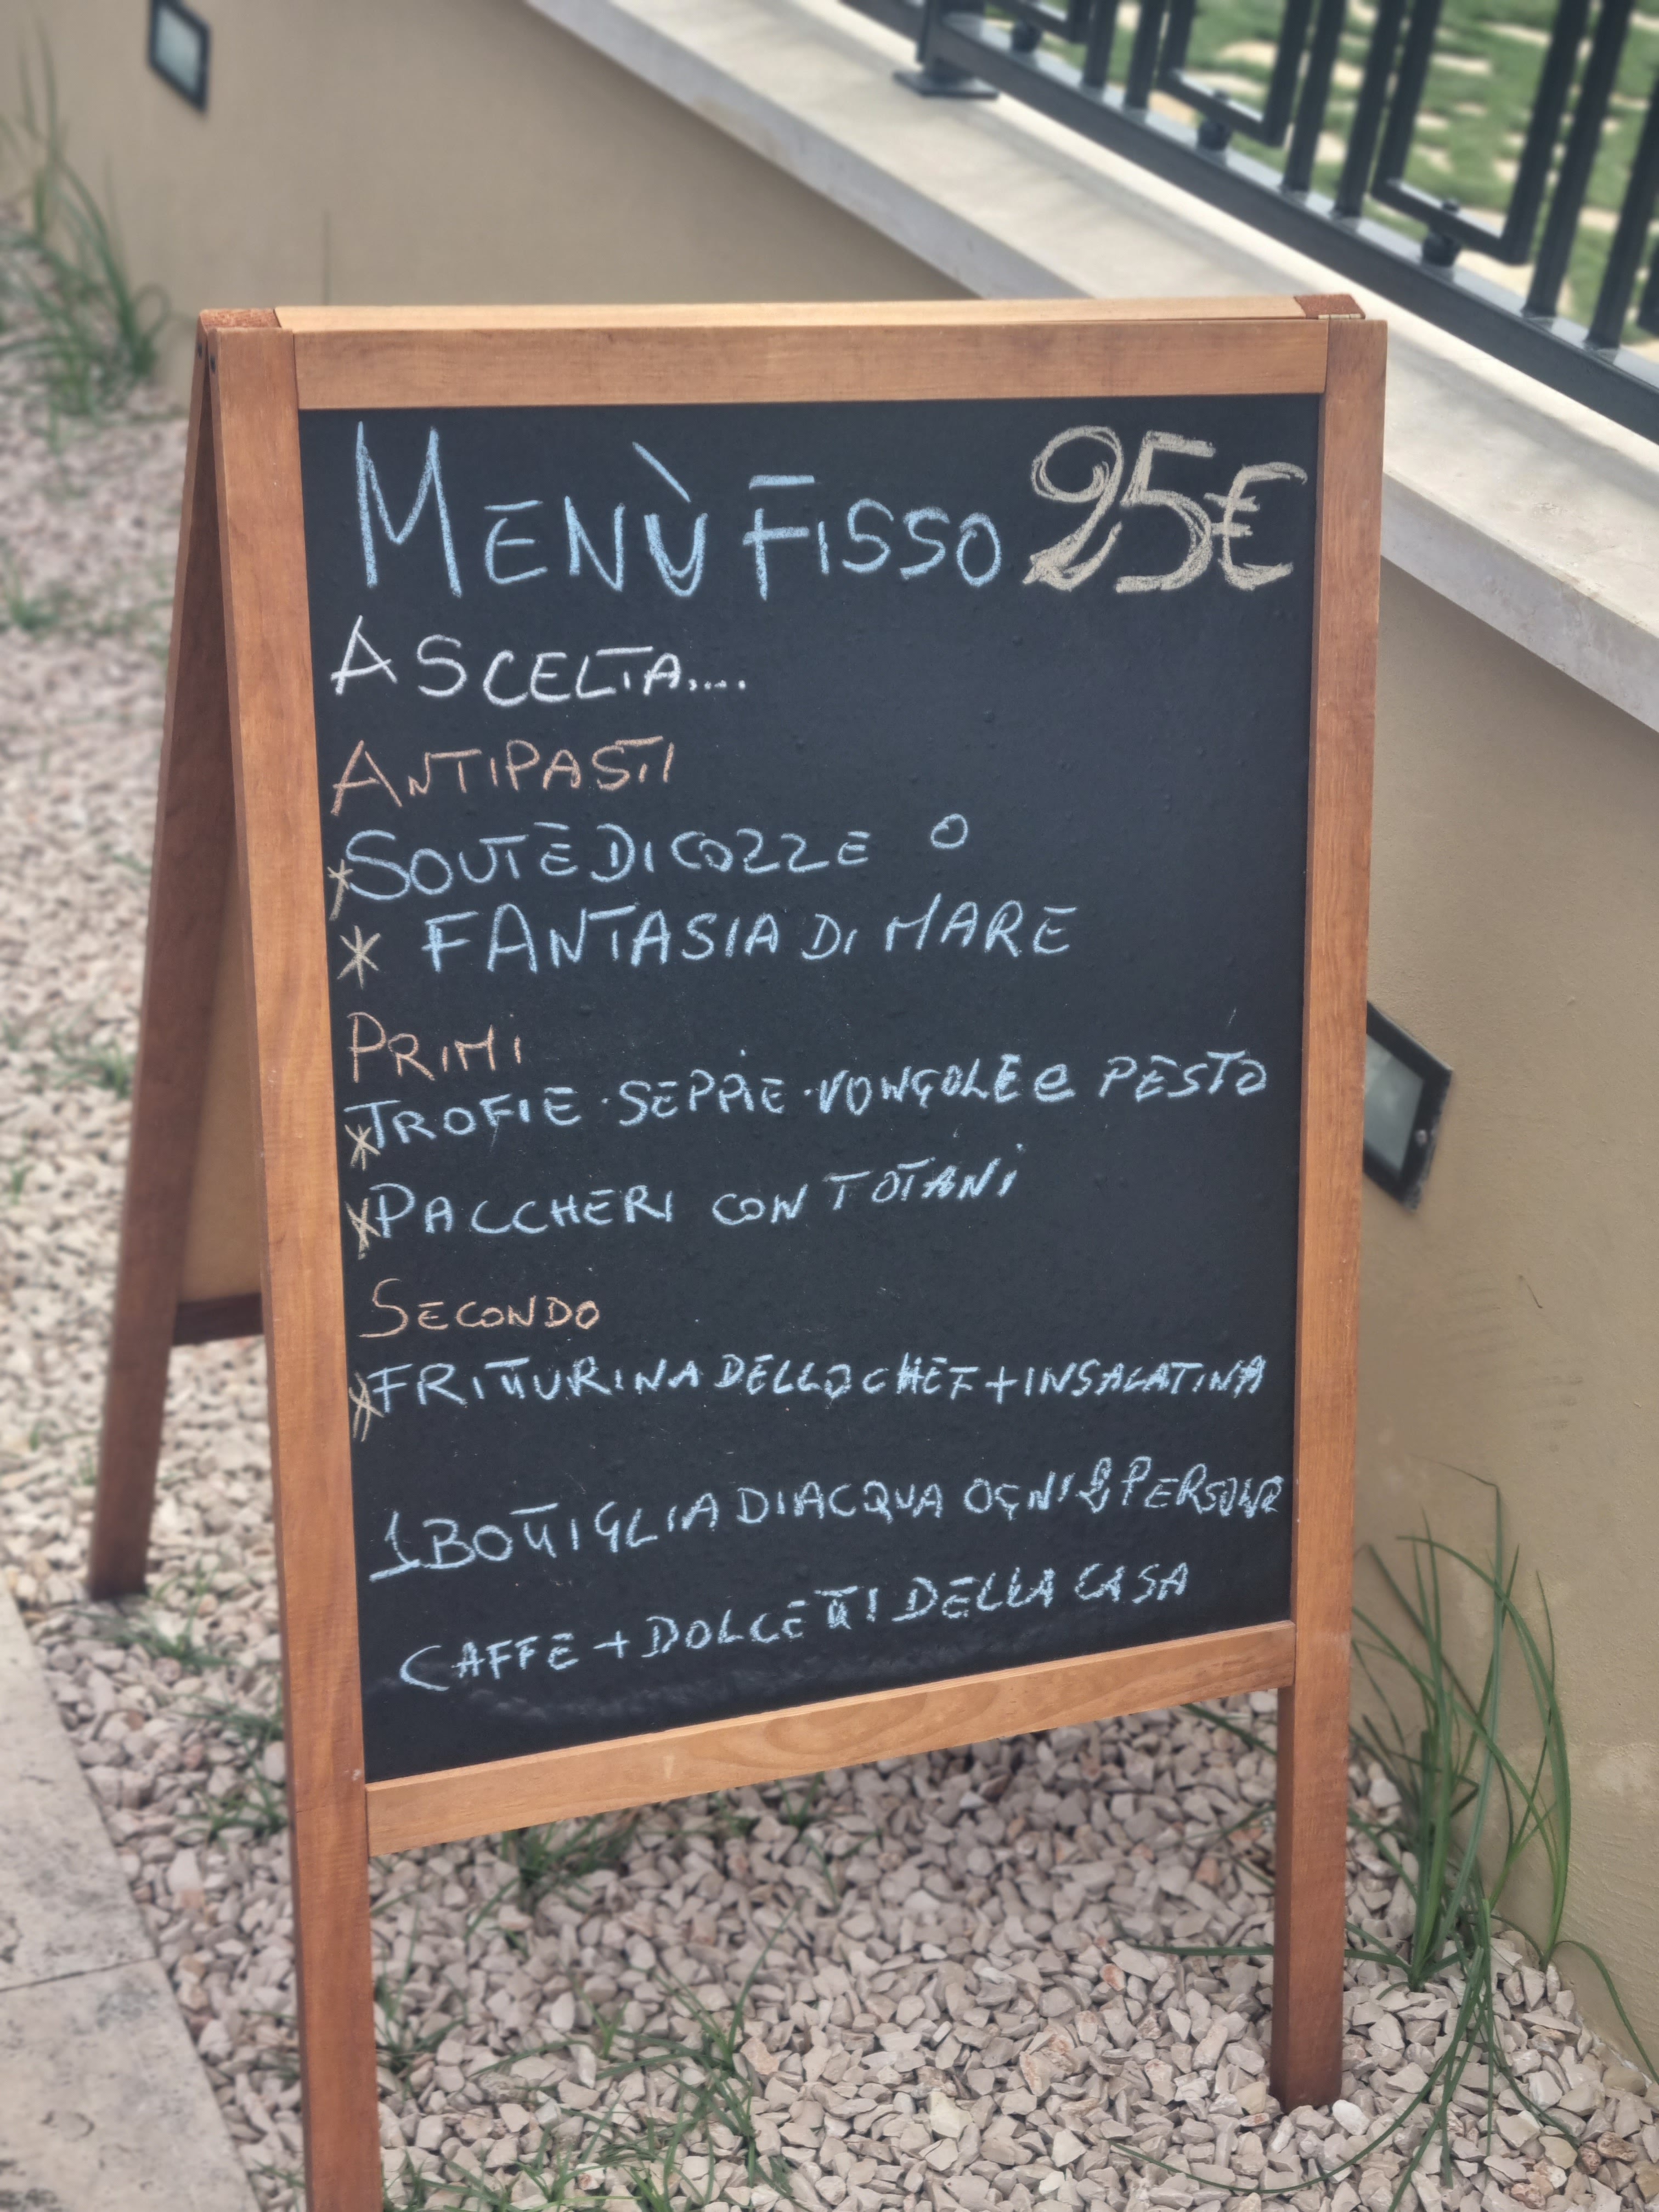 MENÙ FISSO 25€
A SCELTA....
ANTIPASTI
*SOUTÈ DI COZZE O
* FANTASIA DI MARE
PRIMI
*TROFIE · SEPPIE · VONGOLE e PESTO
*PACCHERI CON TOTANI
SECONDO
*FRITTURINA DELLO CHEF + INSALATINA
1 BOTTIGLIA DI ACQUA OGNI 2 PERSONE
CAFFE + DOLCETTI DELLA CASA